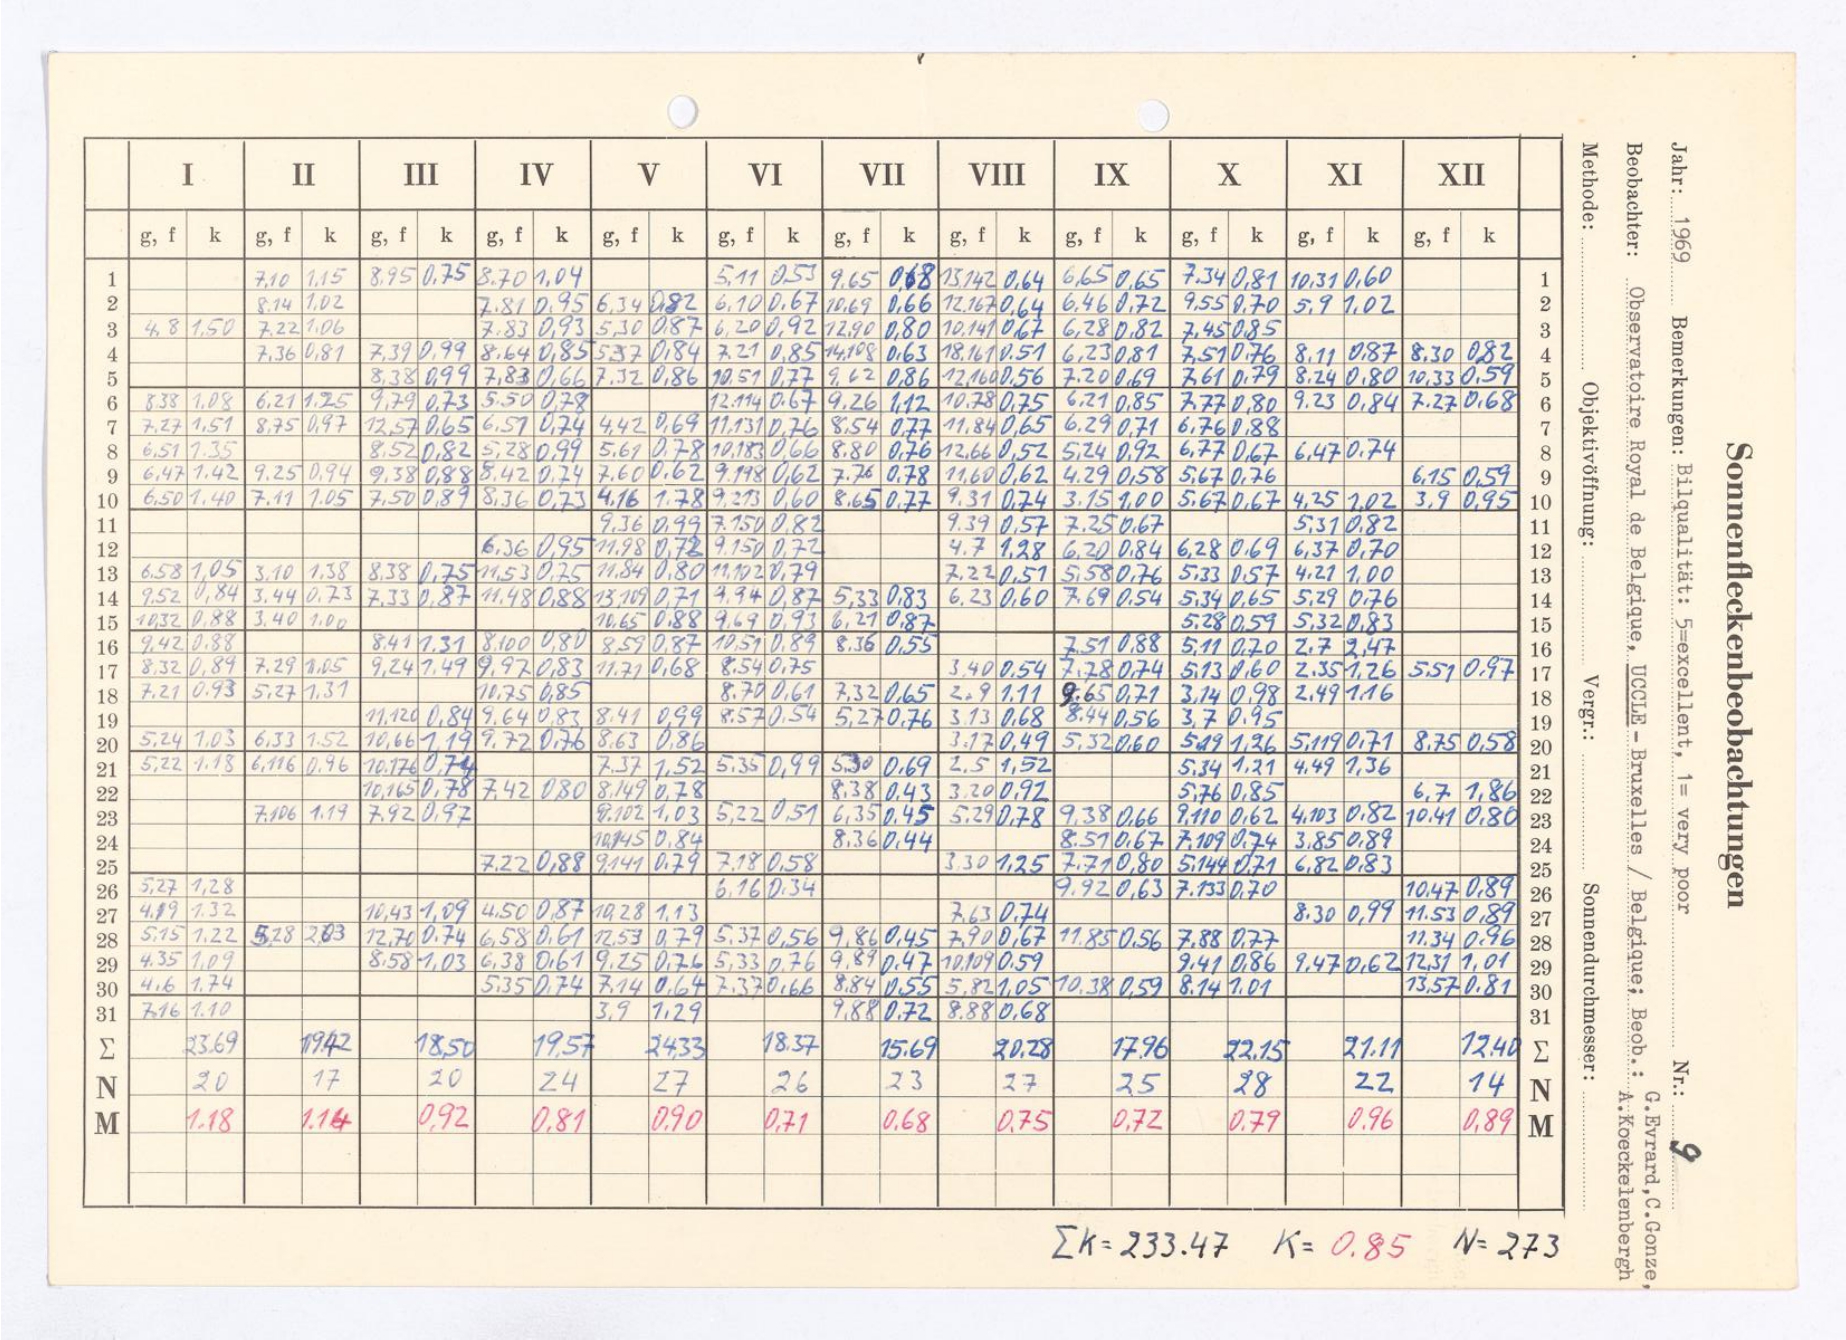 Sonnenfleckenbeobachtungen
Jahr: 1969 Bemerkungen: Bilqualität: 5=excellent, 1= very poor Nr.: 9
Beobachter: Observatoire Royal de Belgique, UCCLE - Bruxelles / Belgique; Beob.: G.Evrard,C.Gonze,
A.Koeckelenbergh
Methode: Objektivöffnung: Vergr.: Sonnendurchmesser:
I II III IV V VI VII VIII IX X XI XII
g, f k g, f k g, f k g, f k g, f k g, f k g, f k g, f k g, f k g, f k g, f k g, f k
1 7,10 1,15 8.95 0,75 8.70 1,04 5,11 0,53 9,65 0,68 13,142 0,64 6,65 0,65 7.34 0,81 10,31 0,60 1
2 8.14 1,02 7.81 0,95 6,34 0,82 6,10 0,67 10,69 0,66 12,167 0,64 6,46 0,72 9,55 0,70 5,9 1,02 2
3 4,8 1,50 7,22 1,06 7.83 0,93 5,30 0,87 6,20 0,92 12,90 0,80 10,141 0,67 6,28 0,82 7,45 0,85 3
4 7,36 0,81 7,39 0,99 8,64 0,85 5,37 0,84 7.21 0,85 14,108 0,63 18,161 0,51 6,23 0,81 7,51 0,76 8,11 0,87 8,30 0,82 4
5 8,38 0,99 7,83 0,66 7.32 0,86 10,51 0,77 9,62 0,86 12,160 0,56 7.20 0,69 7,61 0,79 8.24 0,80 10,33 0,59 5
6 8.38 1,08 6,21 1.25 9,79 0,73 5.50 0,78 12.114 0.67 9,26 1,12 10,78 0,75 6.21 0,85 7,77 0,80 9.23 0,84 7.27 0,68 6
7 7,27 1,51 8,75 0,97 12,57 0,65 6,51 0,74 4,42 0,69 11,131 0,76 8.54 0,77 11,84 0,65 6,29 0,71 6,76 0,88 7
8 6,51 1.35 8,52 0,82 5,28 0,99 5,61 0,78 10,183 0,66 8,80 0,76 12,66 0,52 5,24 0,92 6,77 0,67 6,47 0,74 8
9 6,47 1.42 9.25 0,94 9,38 0,88 8,42 0,74 7,60 0,62 9,198 0,62 7.76 0,78 11,60 0,62 4.29 0,58 5,67 0,76 6,15 0,59 9
10 6,50 1.40 7.11 1.05 7,50 0,89 8,36 0,73 4,16 1.78 9,213 0,60 8.65 0,77 9.31 0,74 3.15 1,00 5.67 0,67 4,25 1,02 3.9 0,95 10
11 9.36 0,99 7.150 0,82 9.39 0,57 7.25 0,67 5,31 0,82 11
12 6,36 0,95 11,98 0,72 9.150 0,72 4.7 1,28 6,20 0,84 6,28 0.69 6,37 0,70 12
13 6.58 1,05 3,10 1.38 8,38 0,75 11,53 0,75 11,84 0,80 11,102 0,79 7.22 0,51 5,58 0,76 5.33 0,57 4.21 1,00 13
14 9,52 0,84 3,44 0.73 7,33 0,87 11,48 0,88 13,109 0,71 9,94 0,87 5,33 0,83 6,23 0,60 7.69 0.54 5,34 0,65 5,29 0,76 14
15 10,32 0,88 3,40 1.00 10,65 0,88 9,69 0,93 6,21 0,87 5.28 0,59 5,32 0,83 15
16 9,42 0.88 8,41 1.31 8,100 0,80 8,59 0,87 10,51 0,89 8.36 0,55 7,51 0,88 5.11 0,70 2.7 2,47 16
17 8,32 0,89 7.29 1.05 9,24 1.49 9,97 0,83 11,71 0,68 8.54 0,75 3,40 0,54 7.28 0,74 5,13 0,60 2.35 1,26 5,51 0,97 17
18 7,21 0.93 5,27 1,31 10,75 0,85 8.70 0,61 7,32 0,65 2.9 1,11 9.65 0,71 3,14 0,98 2,49 1,16 18
19 11,120 0,84 9.64 0,83 8.41 0,99 8.57 0,54 5,27 0,76 3.13 0,68 8.44 0,56 3,7 0,95 19
20 5,24 1.03 6,33 1.52 10,66 1,19 9,72 0,76 8.63 0,86 3.17 0,49 5,32 0,60 5,19 1,26 5,119 0,71 8.75 0,58 20
21 5,22 1.18 6,116 0.96 10.176 0,74 7.37 1,52 5,35 0,99 5,30 0.69 2.5 1,52 5,34 1.21 4.49 1,36 21
22 10,165 0,78 7,42 0,80 8,149 0,78 8,38 0,43 3.20 0,92 5,76 0,85 6,7 1,86 22
23 7.106 1.19 7.92 0,97 9,102 1,03 5,22 0,51 6,35 0,45 5.29 0,78 9,38 0,66 9,110 0,62 4,103 0,82 10,41 0,80 23
24 10,145 0,84 8,36 0,44 8.51 0,67 7,109 0,74 3,85 0,89 24
25 7.22 0,88 9,141 0,79 7.18 0,58 3.30 1,25 7,71 0,80 5,144 0,71 6,82 0,83 25
26 5,27 1,28 6,16 0.34 9.92 0,63 7.133 0,70 10,47 0,89 26
27 4.19 1.32 10,43 1,09 4.50 0,87 10,28 1,13 7.63 0,74 8.30 0,99 11.53 0,89 27
28 5,15 1.22 5,28 2,03 12,70 0,74 6,58 0,61 12,53 0,79 5,37 0,56 9,86 0,45 7,90 0,67 11.85 0,56 7,88 0,77 11.34 0,96 28
29 4.35 1,09 8.58 1,03 6,38 0,61 9,25 0,76 5,33 0,76 9,89 0,47 10,109 0,59 9.41 0,86 9,47 0,62 12,31 1,01 29
30 4.6 1.74 5,35 0,74 7,14 0,64 7.37 0,66 8,84 0,55 5,82 1,05 10,38 0,59 8.14 1.01 13,57 0.81 30
31 7,16 1.10 3,9 1,29 9,88 0,72 8.88 0,68 31
Σ 23.69 19,42 18,50 19,57 24,33 18.37 15.69 20.28 17.96 22.15 21.11 12.40 Σ
N 20 17 20 24 27 26 23 27 25 28 22 14 N
M 1.18 1.14 0,92 0,81 0.90 0,71 0.68 0.75 0,72 0.79 0.96 0,89 M
Σk = 233.47 K = 0.85 N = 273